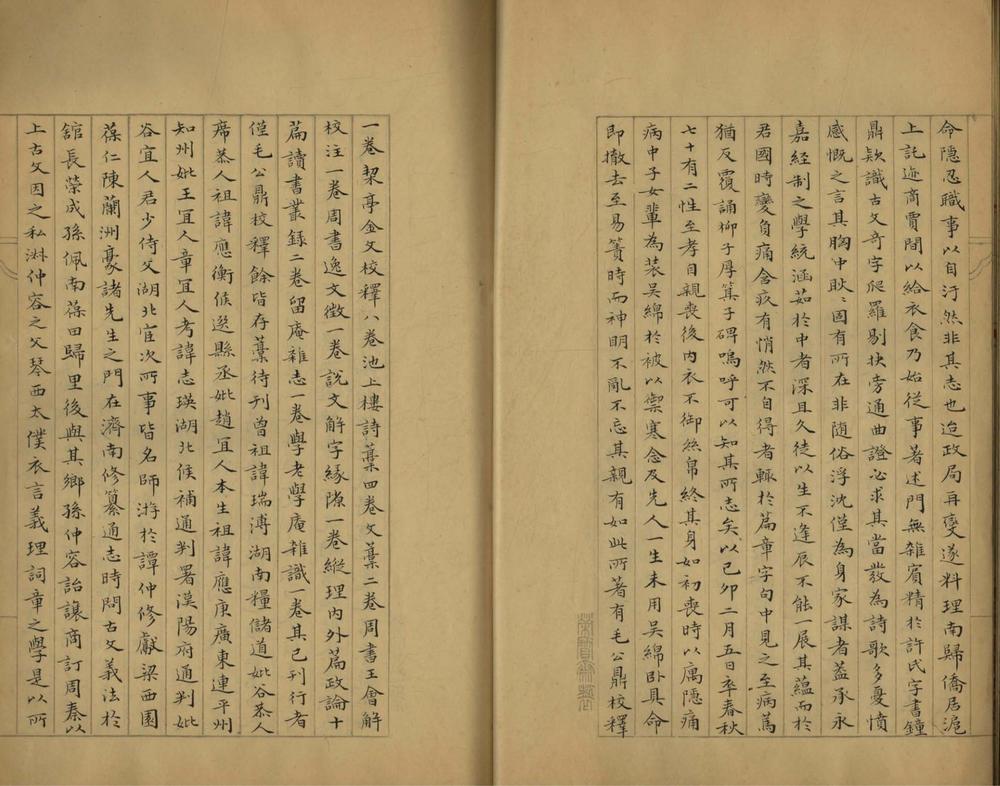 命隱忍職事以自汙然非其志也迨政局再變遂料理南歸僑居滬
上託迹商賈間以給衣食乃始從事著述門無雜賓精於許氏字書鐘
鼎欵識古文奇字爬羅剔抉旁通曲證必求其當發為詩歌多憂憤
感慨之言其胸中耿〻固有所在非隨俗浮沈僅為身家謀者蓋承永
嘉經制之學統涵茹於中者深且久徒以生不逢辰不能一展其蘊而於
君國時變負痛含疚有悄然不自得者輒於篇章字句中見之至病篤
猶反覆誦柳子厚箕子碑嗚呼可以知其所志矣以己卯二月五日卒春秋
七十有二性至孝自親喪後內衣不御絲帛終其身如初喪時以厲隱痛
病中子女輩為裝吳綿於被以禦寒念及先人一生未用吳綿卧具命
即撤去至易簀時而神明不亂不忘其親有如此所著有毛公鼎校釋
一卷栔亭金文校釋八卷池上樓詩藁四卷文藁二卷周書王會解
校注一卷周書逸文徵一卷說文解字緣隙一卷縱理內外篇政論十
篇讀書叢錄二卷留庵雜志一卷學老學庵雜識一卷其已刊行者
僅毛公鼎校釋餘皆存藁待刊曾祖諱瑞溥湖南糧儲道妣谷恭人
席恭人祖諱應衡候選縣丞妣趙宜人本生祖諱應庚廣東連平州
知州妣王宜人章宜人考諱志瑛湖北候補通判署漢陽府通判妣
谷宜人君少侍父湖北宦次所事皆名師游於譚仲修獻梁西園
葆仁陳蘭洲豪諸先生之門在濟南修纂通志時問古文義法於
舘長榮成孫佩南葆田歸里後與其鄉孫仲容詒讓商訂周秦以
上古文因之私淋仲容之父琴西太僕衣言義理詞章之學是以所